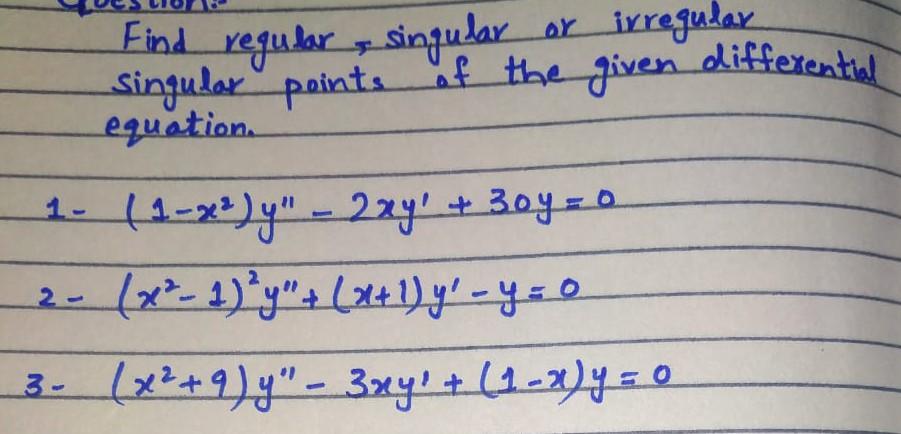 Question:-
Find regular, singular or irregular
singular points of the given differential
equation.
1- (1-x²)y" - 2xy' + 30y = 0
2- (x²-1)²y" + (x+1)y' - y = 0
3- (x²+9)y" - 3xy' + (1-x)y = 0